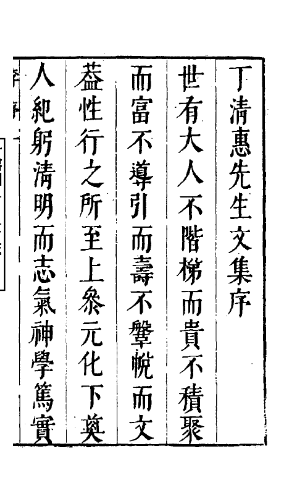 丁清惠先生文集序
世有大人不階梯而貴不積聚
而富不導引而壽不鞶帨而文
葢性行之所至上叅元化下奠
人紀躬清明而志氣神學篤實